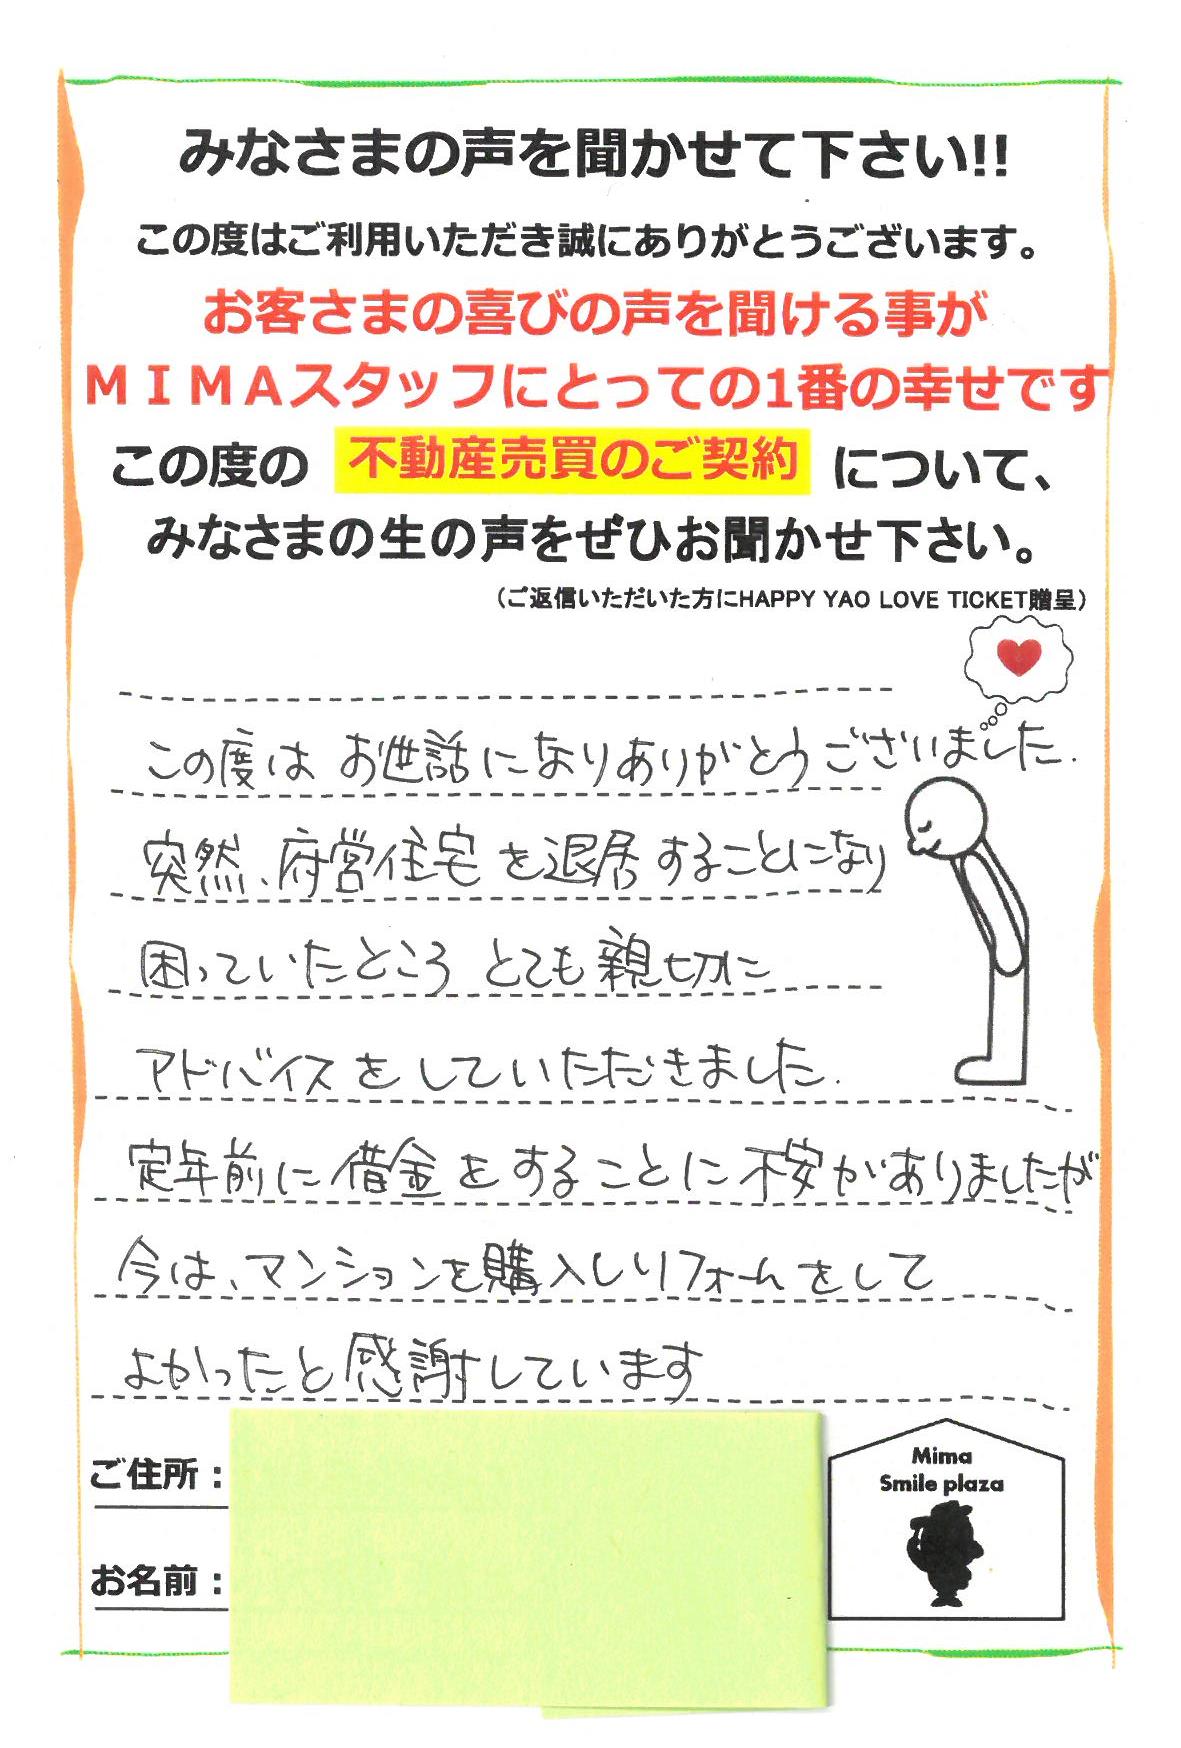 みなさまの声を聞かせて下さい!!
この度はご利用いただき誠にありがとうございます。
お客さまの喜びの声を聞ける事が
ＭＩＭＡスタッフにとっての1番の幸せです
この度の 不動産売買のご契約 について、
みなさまの生の声をぜひお聞かせ下さい。
（ご返信いただいた方にHAPPY YAO LOVE TICKET贈呈）
この度は お世話になりありがとうございました.
突然、府営住宅を退居することになり
困っていたところ とても親切に
アドバイスをしていただきました.
定年前に借金をすることに不安がありましたが
今は、マンションを購入しリフォームをして
よかったと感謝しています
ご住所：
お名前：
Mima
Smile plaza